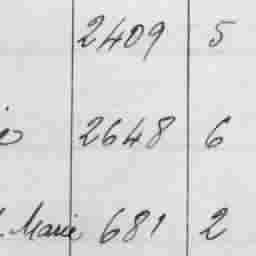 2409 5
2648 6
. Marie 681 2